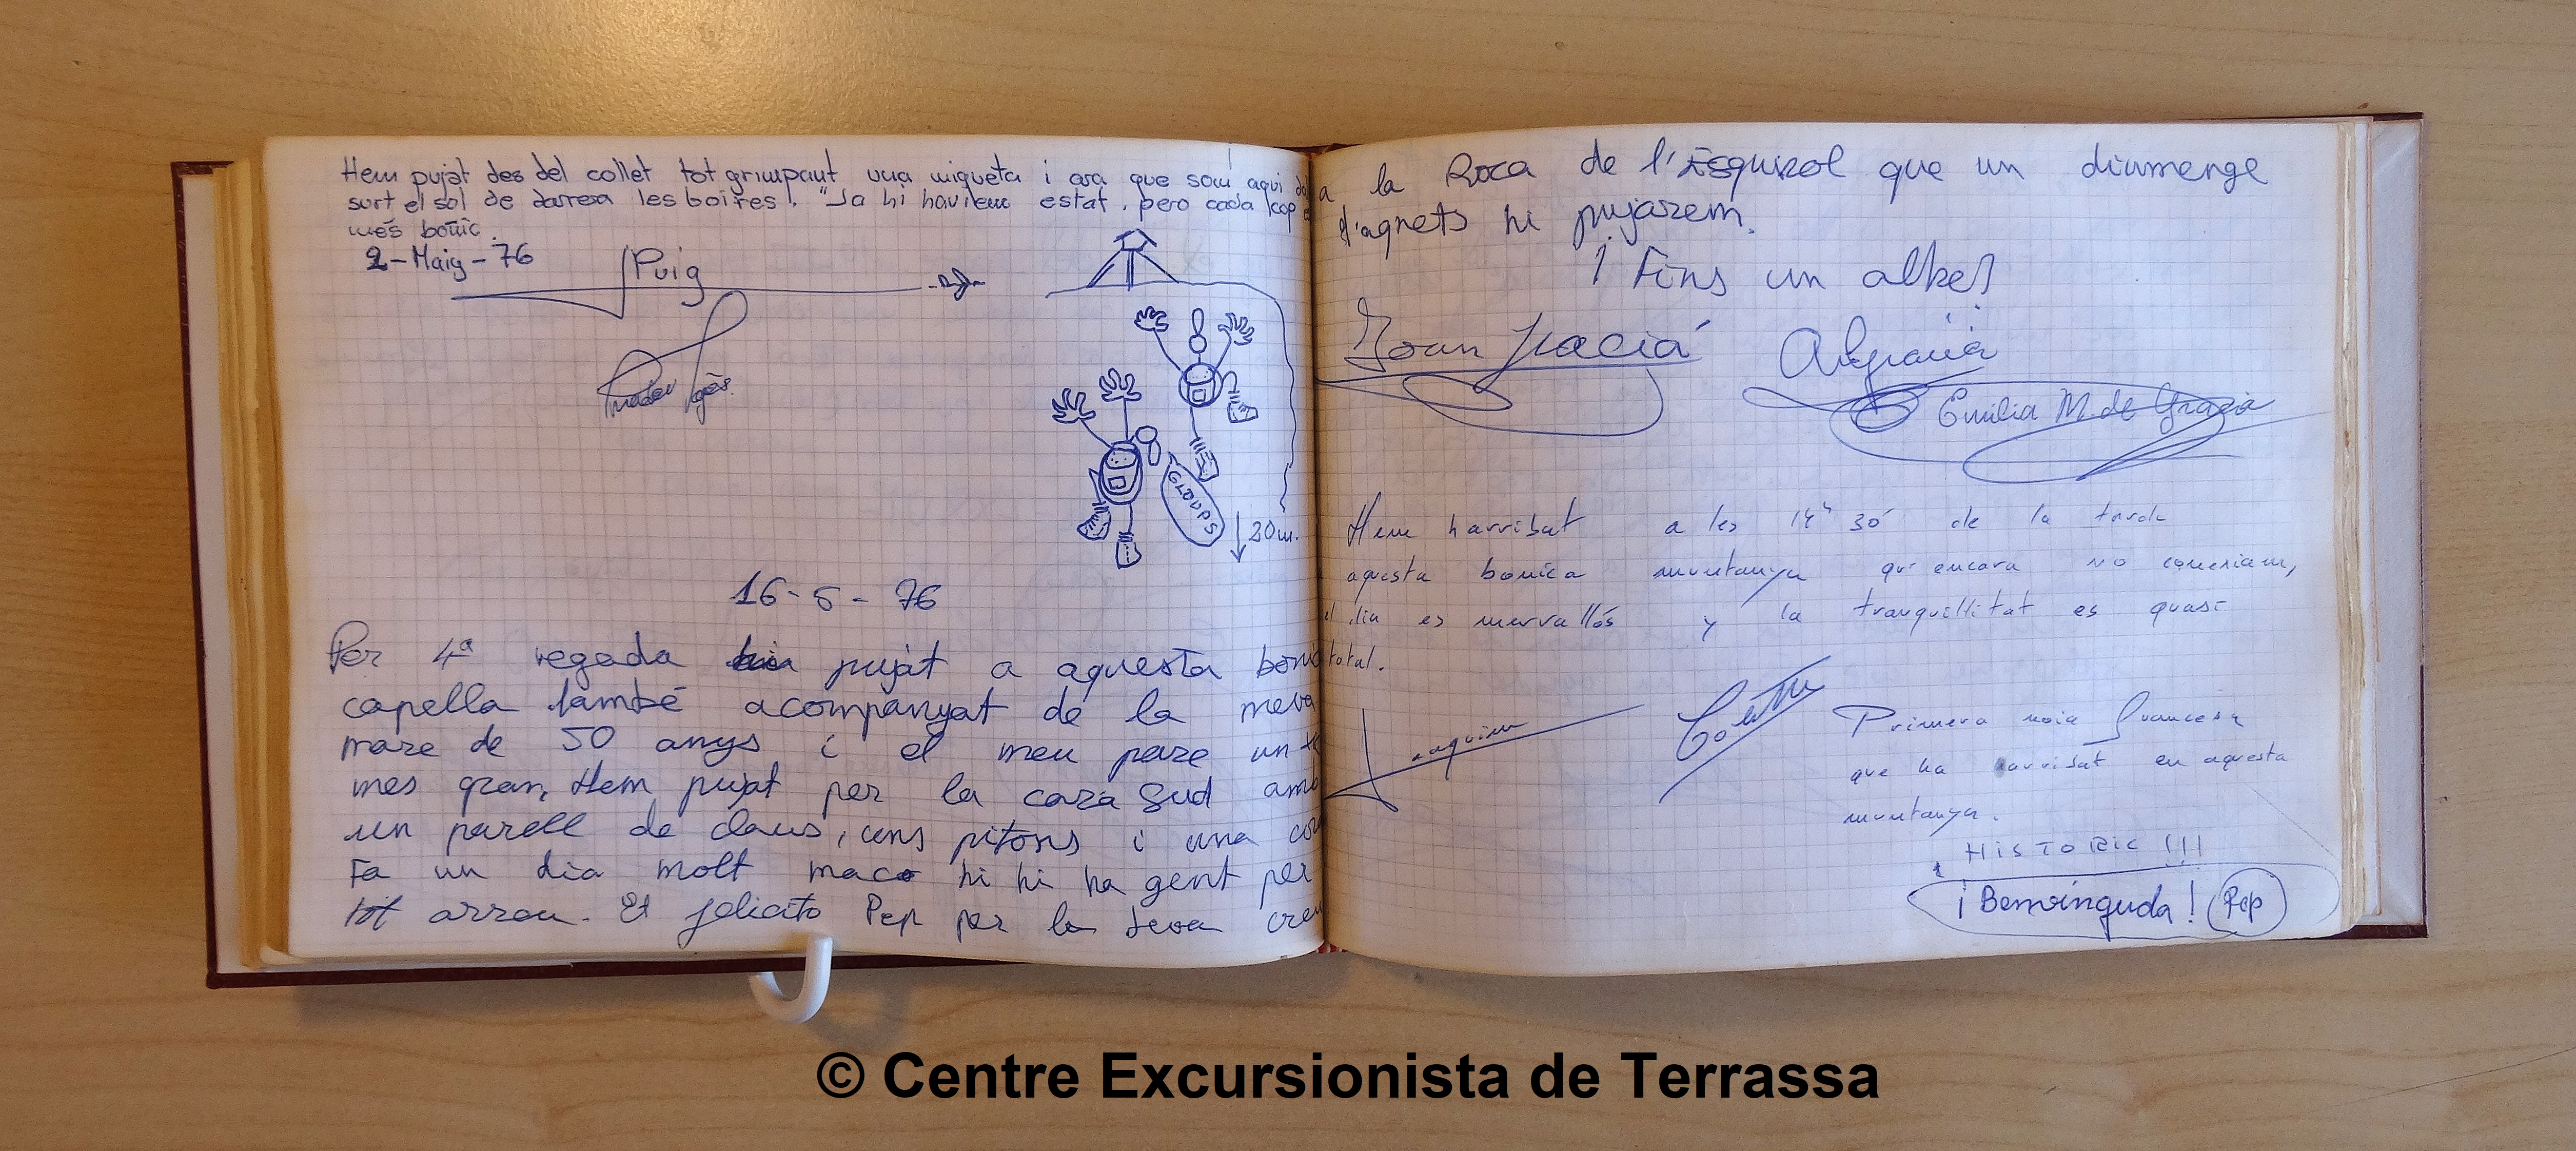 Hem pujat des del collet tot grimpant una miqueta i ara que som aqui dalt
surt el sol de darrera les boires. "Ja hi haviem estat, pero cada cop es
més bonic.
2-Maig-76
Puig
GLOUPS
30m.
16-5-76
Per 4ª vegada pujat a aquesta bonica
capella també acompanyat de la meva
mare de 50 anys i el meu pare un
mes gran, Hem pujat per la cara Sud amb
un parell de claus, uns pitons i una
Fa un dia molt maco hi hi ha gent per
tot arreu. Et felicito Pep per la teva creu
a la Roca de l'Esquirol que un diumenge
d'aqnets hi pujarem.
¡Fins un altre!
Joan Gracià
A Gracià
Emilia M. de Gracia
Hem harribat a les 14h 30' de la tarda
a aquesta bonica muntanya qu' encara no coneixiam,
el dia es mervallós y la tranquillitat es quasi
total.
Joaquim
Primera noia francesa
que ha arribat en aquesta
muntanya.
HISTORIC !!!
¡Benvinguda! Pep
© Centre Excursionista de Terrassa